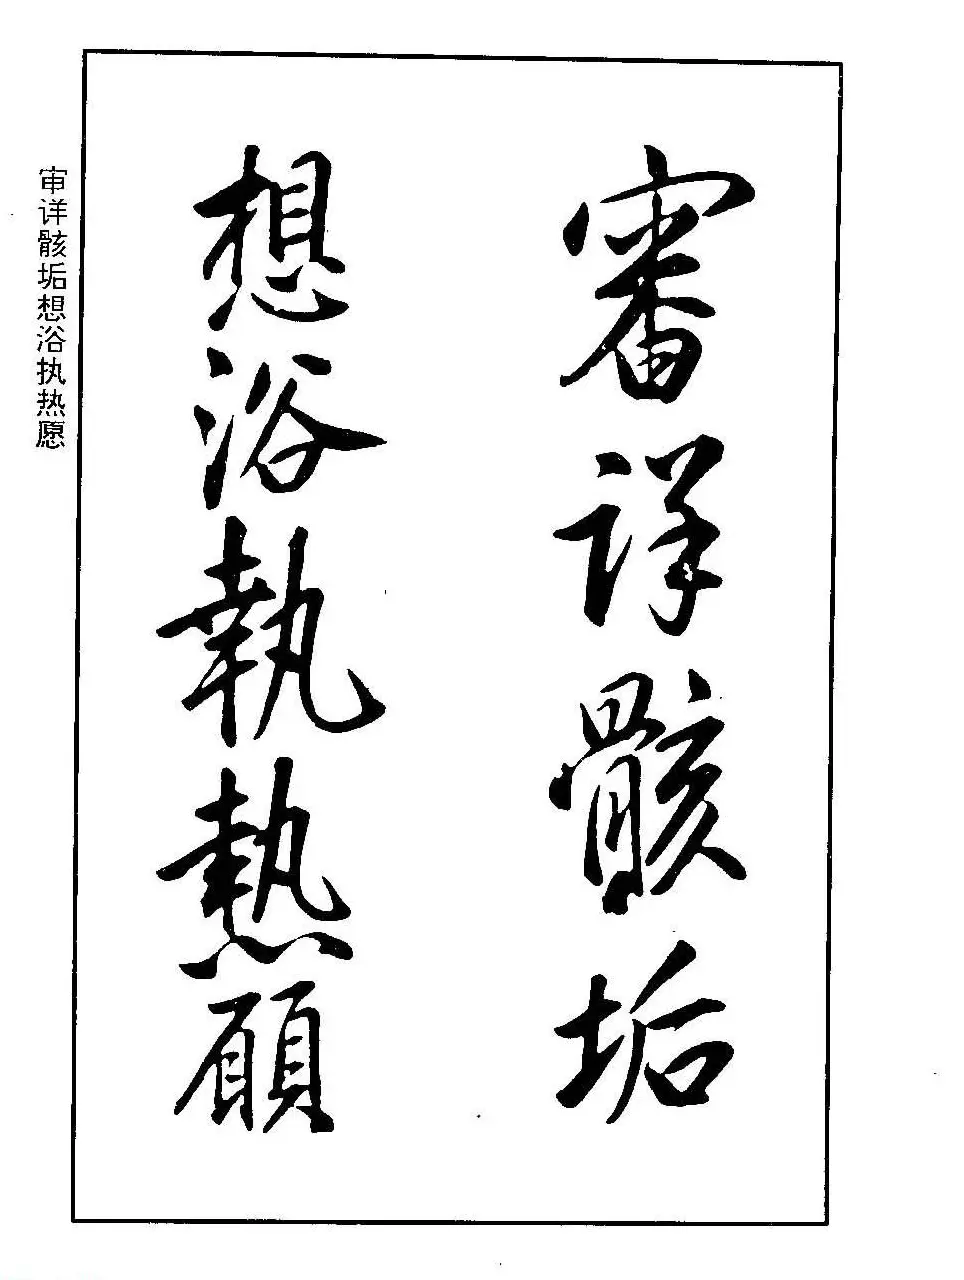 審詳骸垢
想浴執熱願
审详骸垢想浴执热愿